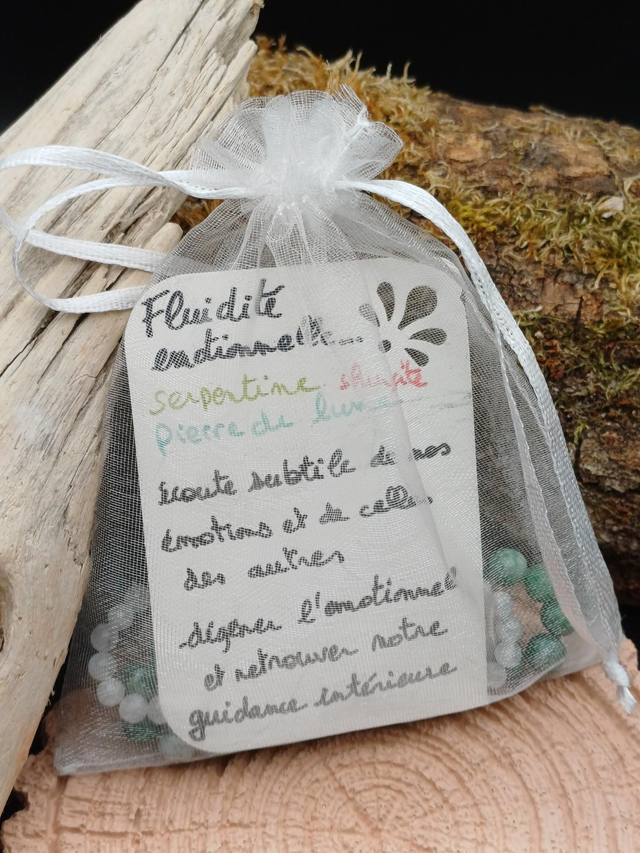 Fluidité
émotionnelle...
serpentine shungite
pierre de lune
écoute subtile de nos
émotions et de celles
des autres
digérer l'émotionnel
et retrouver notre
guidance intérieure